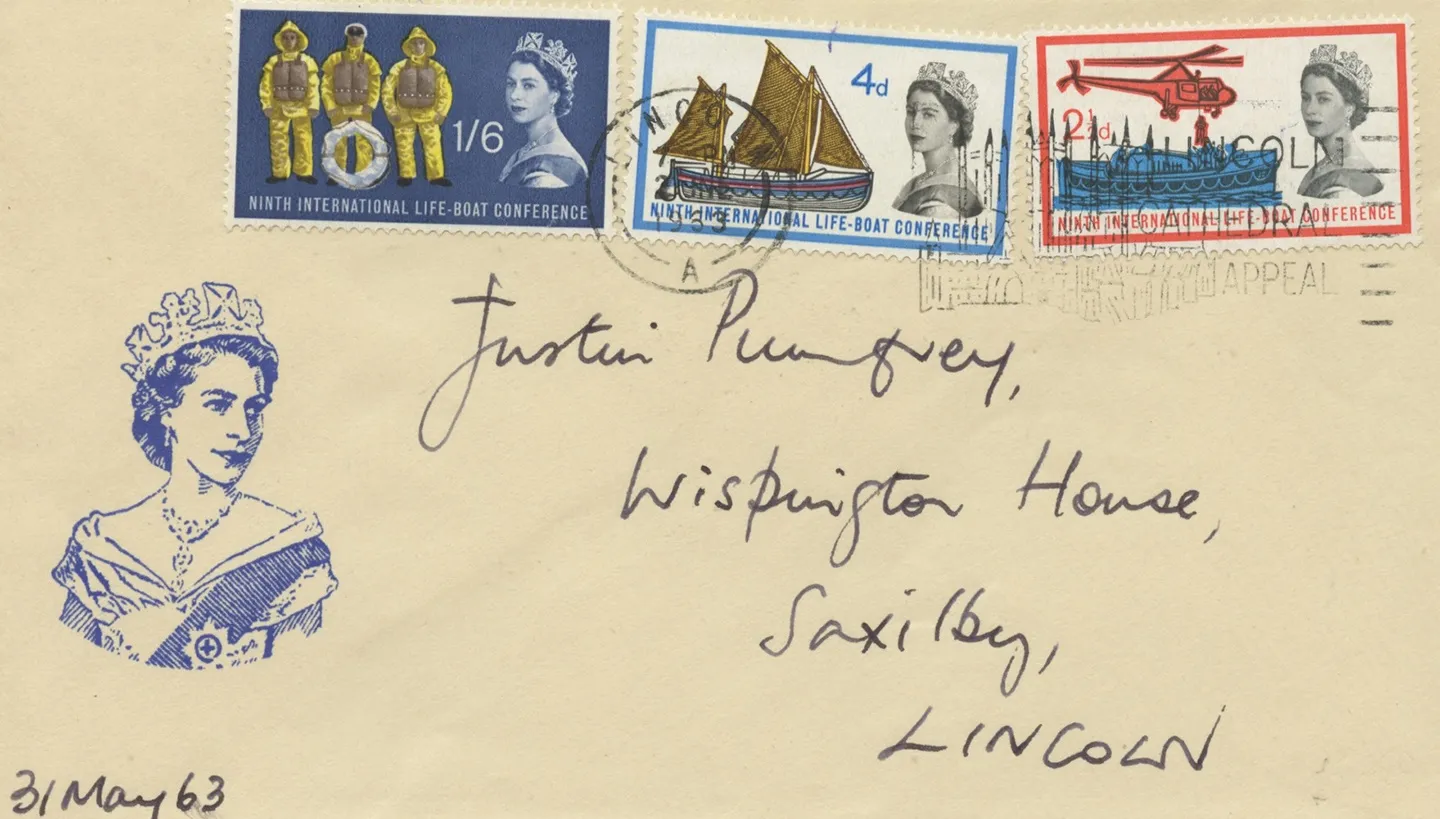 1/6
NINTH INTERNATIONAL LIFE-BOAT CONFERENCE
4d
NINTH INTERNATIONAL LIFE-BOAT CONFERENCE
2½d
NINTH INTERNATIONAL LIFE-BOAT CONFERENCE
LINCOLN
1963
A
LINCOLN
CATHEDRAL
APPEAL
Justin Pumfrey,
Wispington House,
Saxilby,
LINCOLN
31 May 63